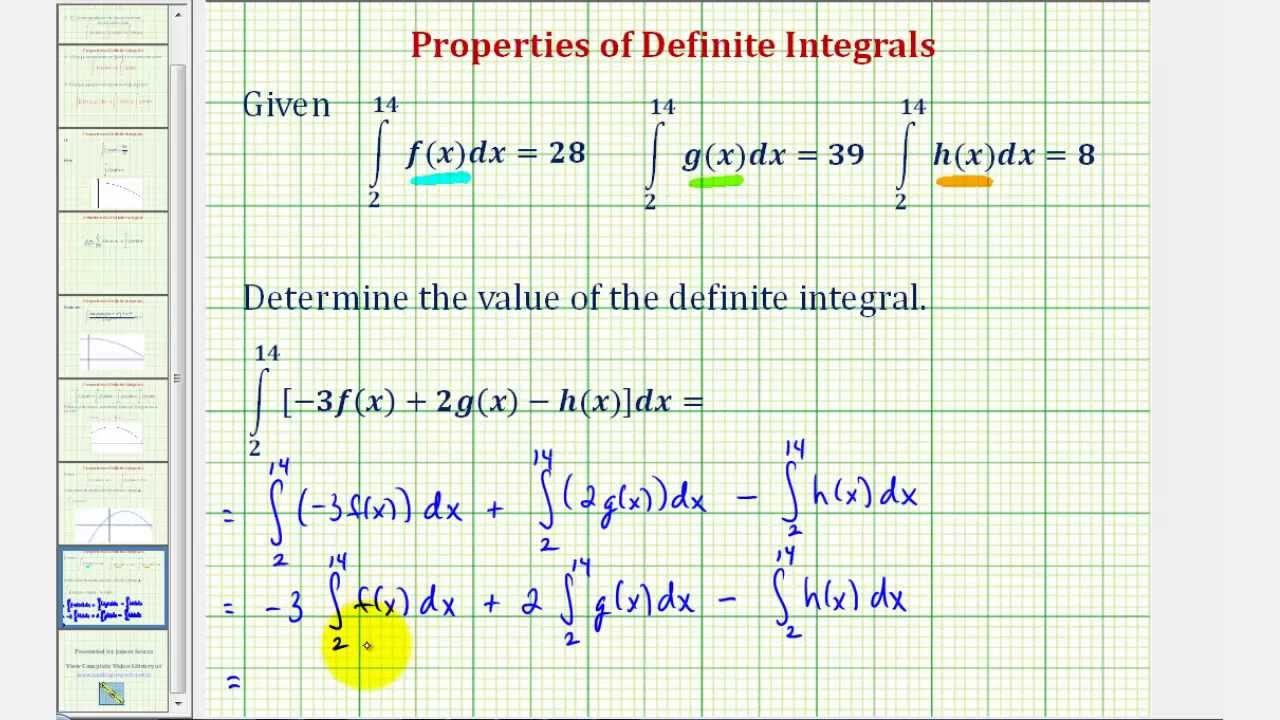 Properties of Definite Integrals
Given ∫₂¹⁴ f(x)dx = 28 ∫₂¹⁴ g(x)dx = 39 ∫₂¹⁴ h(x)dx = 8
Determine the value of the definite integral.
∫₂¹⁴ [−3f(x) + 2g(x) − h(x)]dx =
= ∫₂¹⁴ (−3f(x)) dx + ∫₂¹⁴ (2g(x))dx − ∫₂¹⁴ h(x) dx
= −3 ∫₂¹⁴ f(x) dx + 2 ∫₂¹⁴ g(x) dx − ∫₂¹⁴ h(x) dx
=